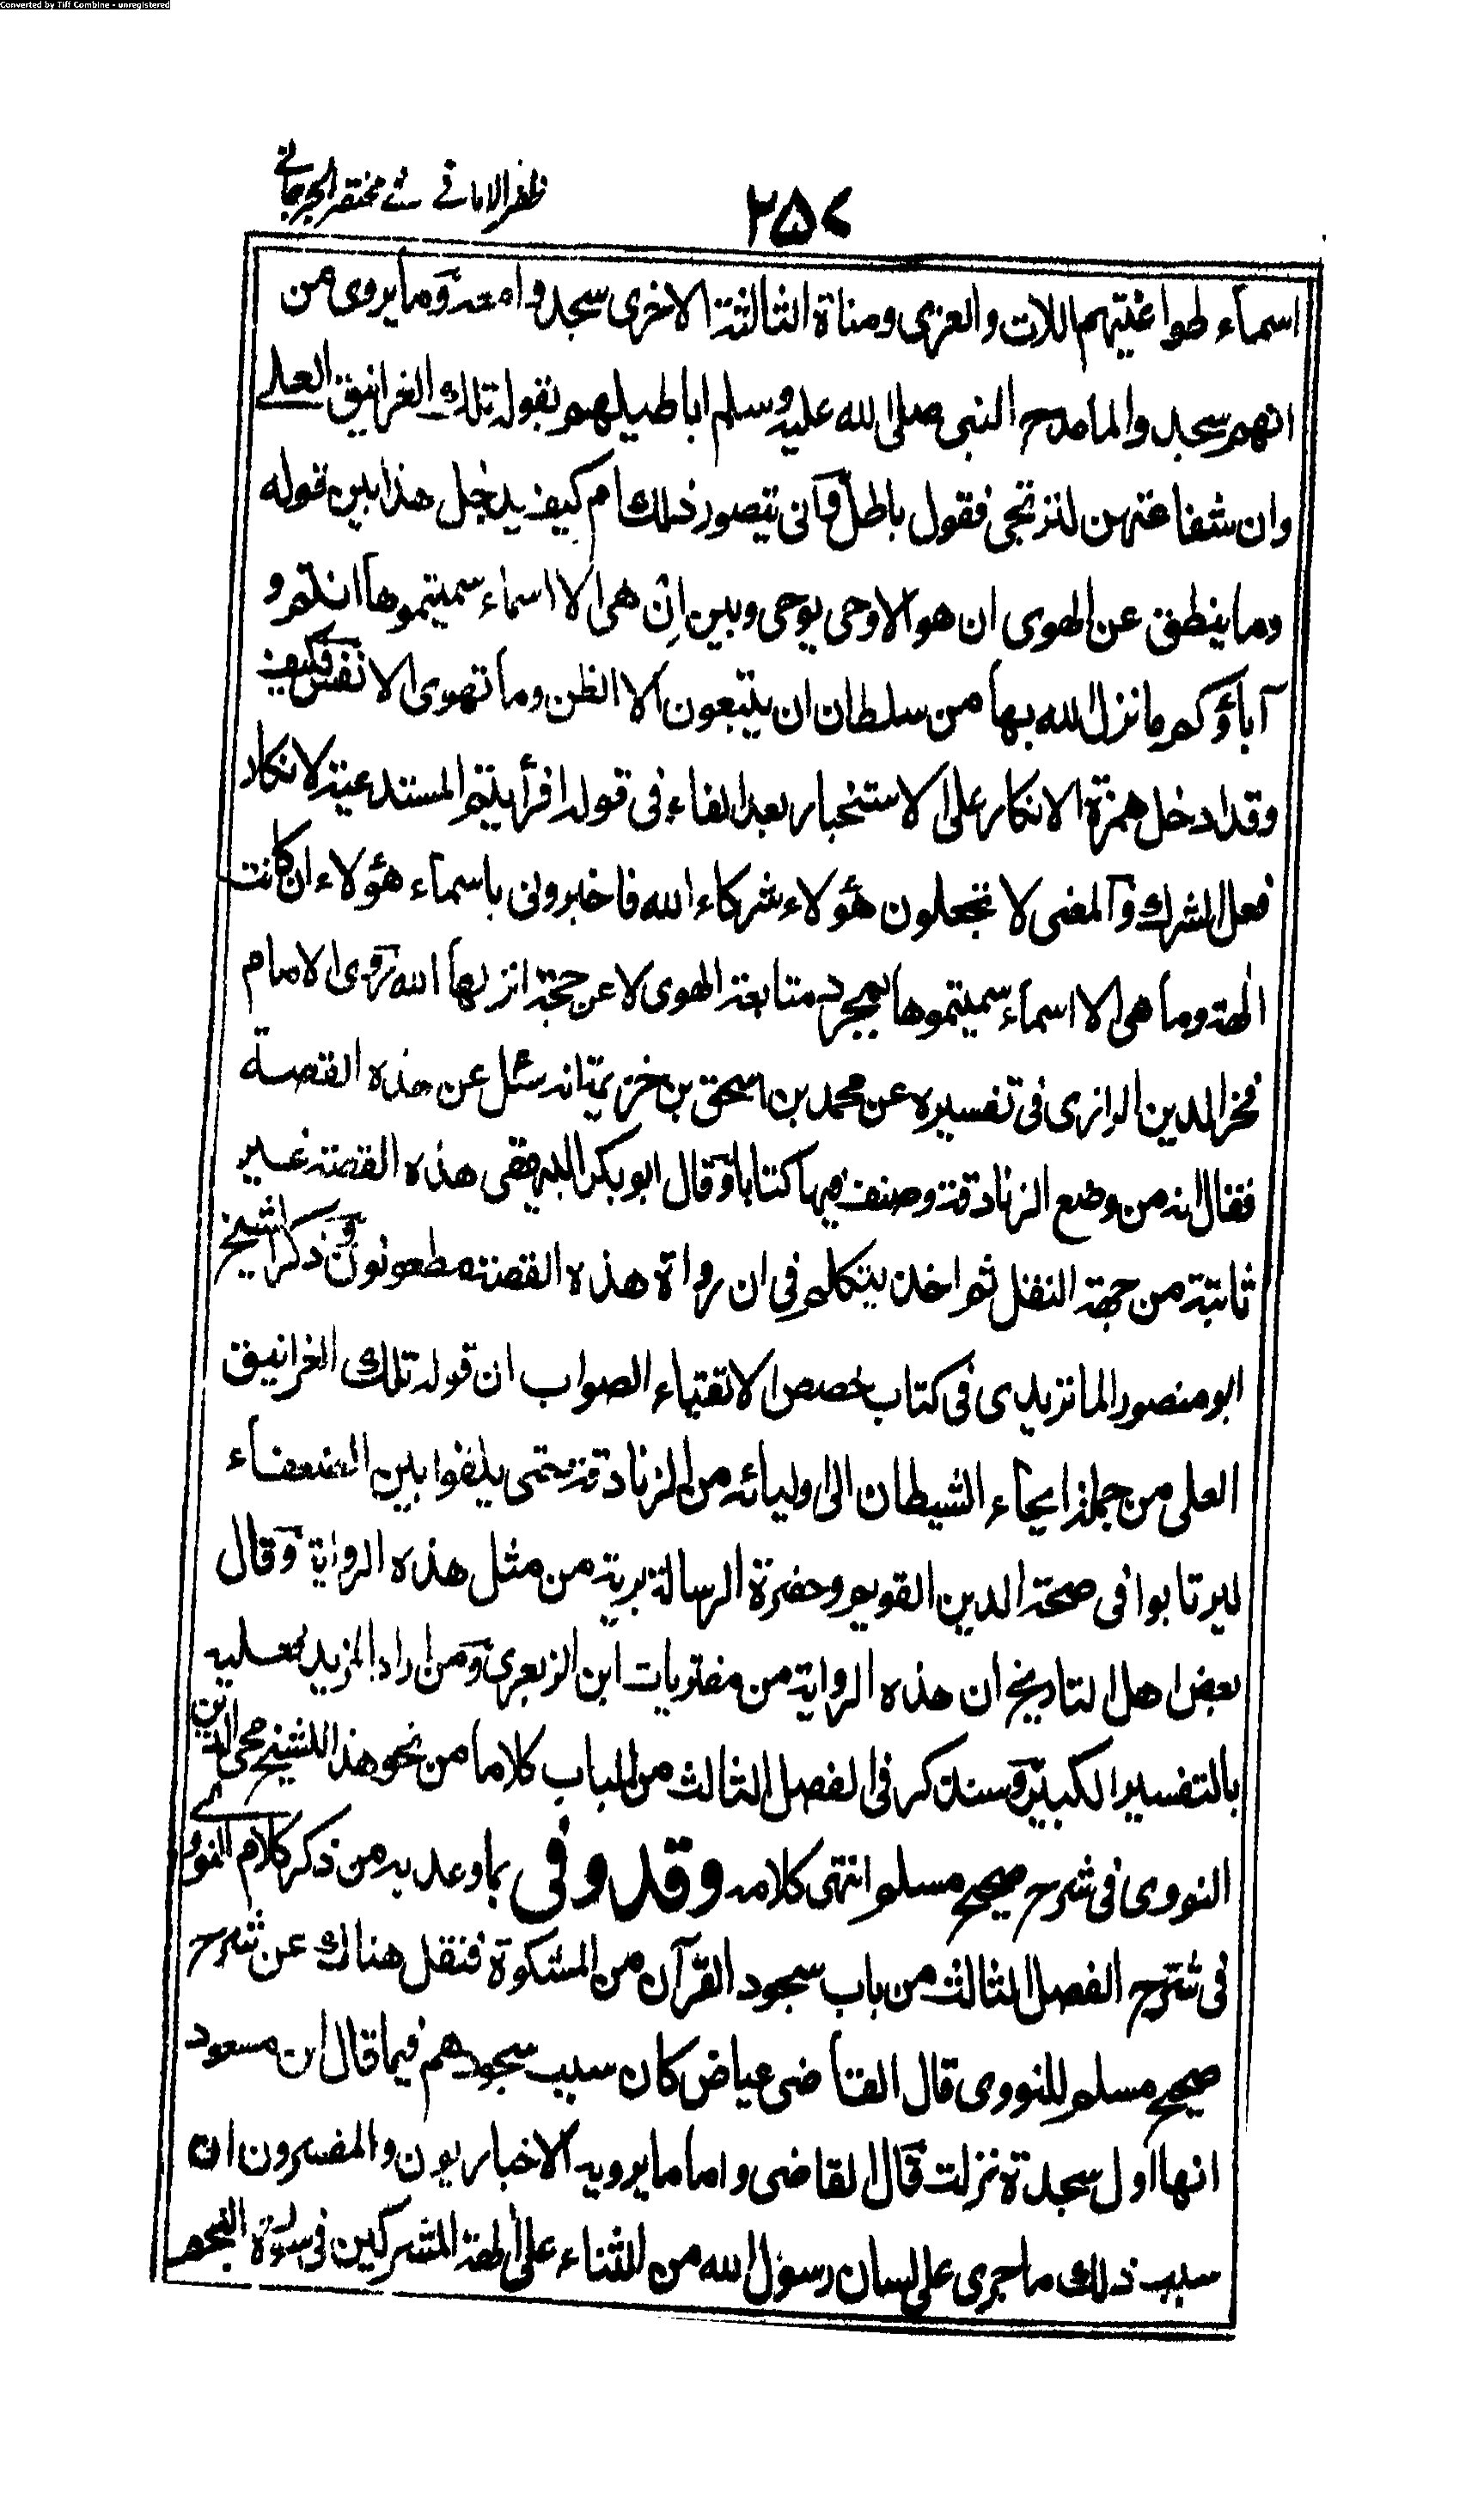 Converted by Tiff Combine - unregistered
ظفر الامانے فے مختصر الجرجانے
۲۵۷
اسماء طواغيتهم اللات والعزى ومناة الثالثة الاخرى سجدوا معه وما يروى من
انهم سجدوا لما مدح النبي صلى الله عليه وسلم اباطيلهم بقوله تلك الغرانيق العلى
وان شفاعتهن لترتجى فقول باطل وانى يتصور ذلك ام كيف يدخل هذا بين قوله
وما ينطق عن الهوى ان هو الا وحى يوحى وبين ان هى الا اسماء سميتموها انتم و
آباؤكم ما نزل الله بها من سلطان ان يتبعون الا الظن وما تهوى الانفس فكيف
وقد ادخل همزة الانكار على الاستخبار بعد الفاء فى قوله افرأيتم المستدعية لانكار
فعل الشرك والمعنى لا تجعلون هؤلاء شركاء الله فاخبرونى باسماء هؤلاء ان كانت
الهة وما هى الا اسماء سميتموها بمجرد متابعة الهوى لا عن حجة انزلها الله روى الامام
فخر الدين الرازى فى تفسيره عن محمد بن اسحق بن خزيمة انه سئل عن هذه القصة
فقال انه من وضع الزنادقة وصنف فيها كتابا وقال ابو بكر البيهقى هذه القصة غير
ثابتة من جهة النقل ثم اخذ يتكلم فى ان رواة هذه القصة مطعونون وذكر الشيخ
ابو منصور الماتريدى فى كتاب خصص الاتقياء الصواب ان قوله تلك الغرانيق
العلى من جملة ايحاء الشيطان الى اوليائه من الزنادقة حتى يلقوا بين الضعفاء
ليرتابوا فى صحة الدين القويم وحضرة الرسالة برية من مثل هذه الرواية وقال
بعض اهل التاريخ ان هذه الرواية من مفتريات ابن الزبعرى ومن اراد المزيد فعليه
بالتفسير الكبير وسنذكر فى الفصل الثالث من الباب كلاما من نحو هذا للشيخ محى الدين
النووى فى شرح صحيح مسلم انتهى كلامه وقد وفى بما وعد به من ذكر كلام النووى
فى شرح الفصل الثالث من باب سجود القرآن من المشكوة فنقل هناك عن شرح
صحيح مسلم للنووى قال القاضى عياض كان سبب سجودهم فيما قال ابن مسعود
انها اول سجدة نزلت قال القاضى واما ما يرويه الاخباريون والمفسرون ان
سبب ذلك ما جرى على لسان رسول الله من الثناء على الهة المشركين فى سورة النجم